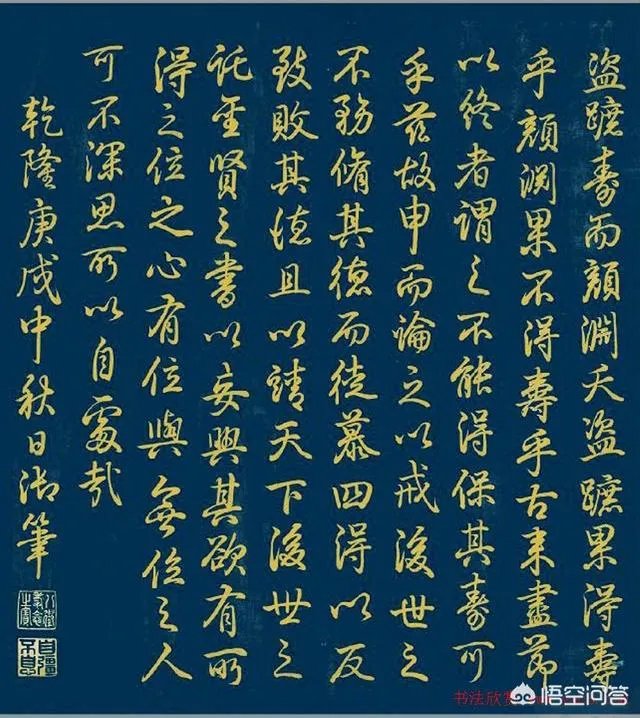 盜蹠壽而顏淵夭盜蹠果得壽
乎顏淵果不得壽乎古來盡節
以終者謂之不能得保其壽可
乎茲故申而論之以戒後世之
不務脩其德而徒慕四得以反
致敗其德且以靖天下後世之
託聖賢之書以妄興其欲有所
得之位之心有位與無位之人
可不深思所以自處哉
乾隆庚戌中秋日御筆
八徵耄念之寶
自彊不息
书法欣
悟空问答